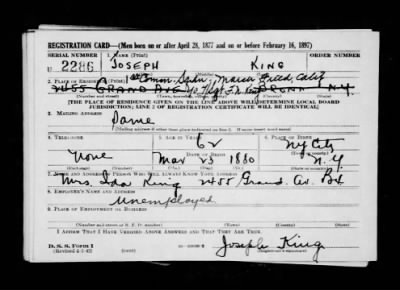 REGISTRATION CARD—(Men born on or after April 28, 1877 and on or before February 16, 1897)
SERIAL NUMBER 1. NAME (Print) ORDER NUMBER
U 2286 JOSEPH KING
Calif
2. PLACE OF RESIDENCE (Print)
2455 GRAND AVE BRONX N.Y.
(Number and street) (Town, township, village, or city) (County) (State)
[THE PLACE OF RESIDENCE GIVEN ON THE LINE ABOVE WILL DETERMINE LOCAL BOARD
JURISDICTION; LINE 2 OF REGISTRATION CERTIFICATE WILL BE IDENTICAL]
3. MAILING ADDRESS
Same
(Mailing address if other than place indicated on line 2. If same insert word same)
4. TELEPHONE 5. AGE IN YEARS 6. PLACE OF BIRTH
62 NY City
DATE OF BIRTH (Town or county)
None Mar 23 1880 N.Y.
(Exchange) (Number) (Mo.) (Day) (Yr.) (State or country)
7. NAME AND ADDRESS OF PERSON WHO WILL ALWAYS KNOW YOUR ADDRESS
Mrs. Ida King 2455 Grand Av. Bx
8. EMPLOYER'S NAME AND ADDRESS
Unemployed
9. PLACE OF EMPLOYMENT OR BUSINESS
(Number and street or R. F. D. number) (Town) (County) (State)
I AFFIRM THAT I HAVE VERIFIED ABOVE ANSWERS AND THAT THEY ARE TRUE.
D. S. S. Form 1
(Revised 4-1-42) Joseph King